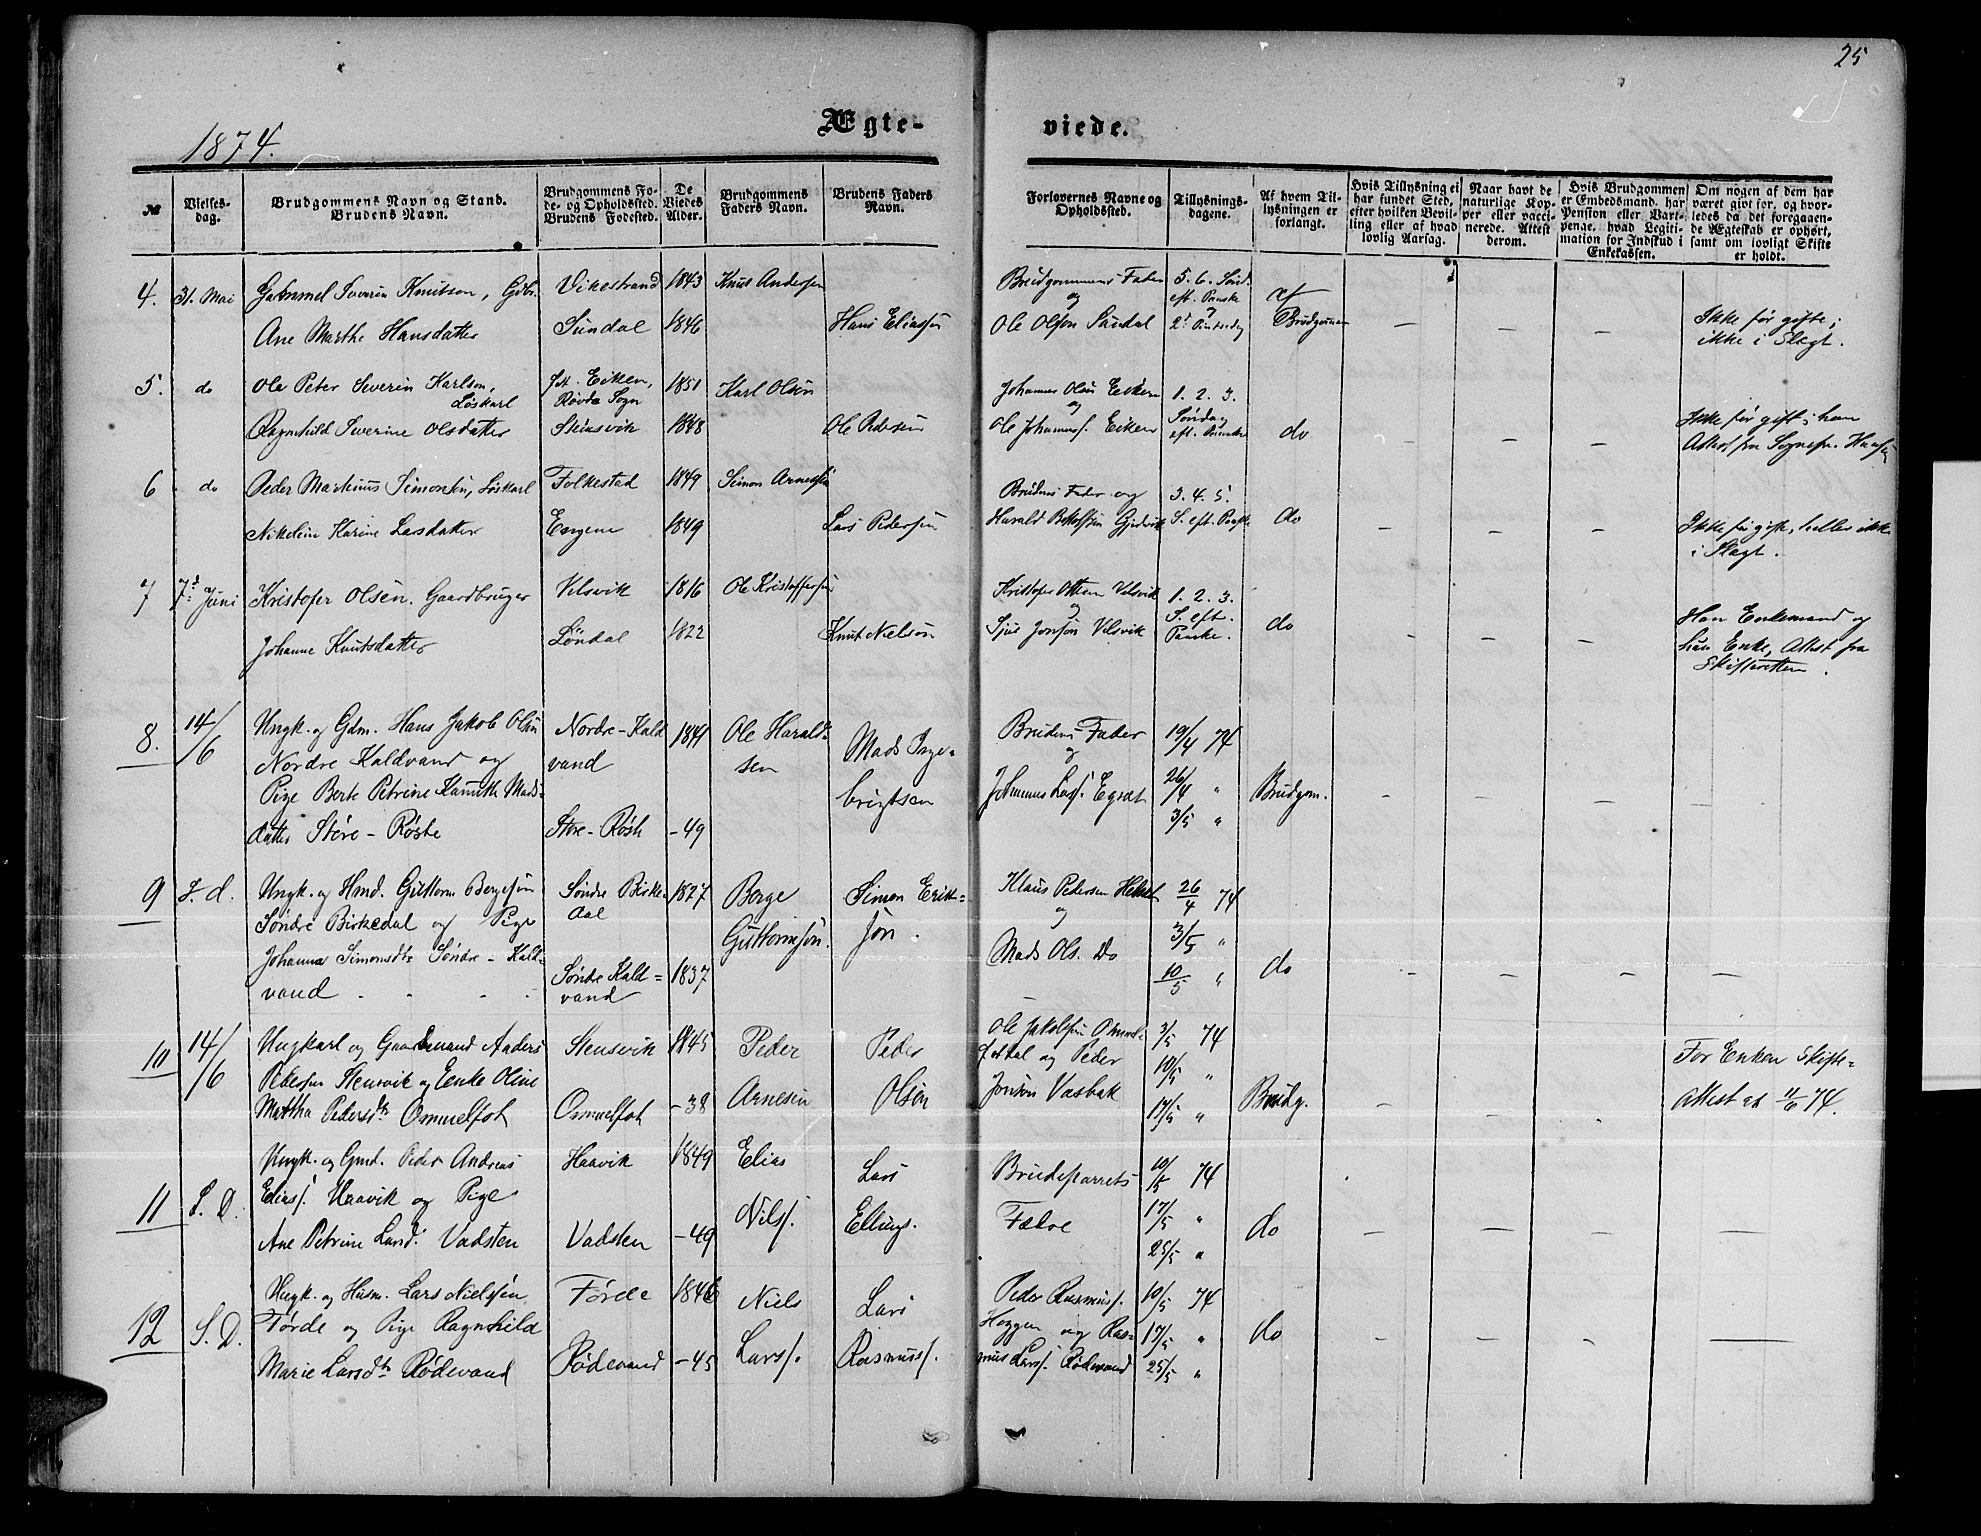 25
1874.
Ægte-
viede.
№
Vielses-
dag.
Brudgommens Navn og Stand.
Brudens Navn.
Brudgommens Fø-
de- og Opholdssted.
Brudens Fødested.
De
Viedes
Alder.
Brudgommens
Faders Navn.
Brudens Faders
Navn.
Forlovernes Navne og
Opholdssted.
Tillysnings-
dagene.
Af hvem Til-
lysningen er
forlangt.
Hvis Tillysning ei
har fundet Sted,
efter hvilken Bevil-
ling eller af hvad
lovlig Aarsag.
Naar havt de
naturlige Kop-
per eller vacci-
nerede. Attest
derom.
Hvis Brudgommen
er Embedsmand, har
Pension eller Vart-
penge, hvad Legiti-
mation for Indskud i
Enkekassen.
Om nogen af dem har
været gift før, og hvor-
ledes da det foregaaen-
de Ægteskab er ophørt,
samt om lovligt Skifte
er holdt.
4.
31. Mai
Gammel Severin Knutson, Gdbr.
Ane Marthe Hansdatter
Vikestrand
Sundal
1843
1846
Knut Andersen
Hans Eliassen
Brudgommens Fader
og
Ole Olson Sundal
5. 6. Sønd.
eft. Paaske
2d Pintsedag
af
Brudgommen
Ikke før gifte;
ikke i Slægt.
5.
do
Ole Peter Severin Karlson,
Løskarl
Ragnhild Severine Olsdatter
Eiken,
Røvde Sogn
Stensvik
1851
1848
Karl Olsen
Ole Pedersen
Johannes Olsen Eiken
og
Ole Johanness. Eiken
1. 2. 3.
Søndag
eft. Paaske
do
Ikke før gift; han
Attest fra Sognepr.
6
do
Peder Martinus Simonsen, Løskarl
Nikoline Karine Larsdatter
Folkestad
Engene
1849
1849
Simon Arnesen
Lars Pedersen
Brudens Fader og
Harald Gjedrik
3. 4. 5.
S. eft. Paaske
do
Ikke før gifte, heller ikke
i Slægt.
7
7d Juni
Kristofer Olsen. Gaardbruger
Johanne Knutsdatter
Velsvik
Løndal
1816
1822
Ole Kristoffersen
Knut Nielson
Kristofer Velsvik
og
Sjur Jonson Velsvik
1. 2. 3.
S. eft.
Paaske.
do
Han Enkemand og
hun Enke, Attest fra
Skifteretten.
8.
14/6
Ungk. og Gdm. Hans Jakob Olsen
Nordre Kaldvand og
Pige Berte Petrine Mads-
datter Støre-Røste
Nordre-Kald
vand
Støre-Røste
1841
-49
Ole Harald-
sen
Mads Inge-
brigtsen
Brudens Fader
og
Johannes Egset
19/4 74
26/4 "
3/5 "
Brudgom.
9
S. d.
Ungk. og Hmd. Guttorm Børgesen
Søndre Birkedal og Pige
Johanna Simonsdtr Søndre-Kald-
vand
Søndre Birke-
dal
Søndre Kald-
vand
1827
1837
Børge
Guttormsøn.
Simon Erik-
søn.
Klaus Pedersen
og
Mads Ols. Do
26/4 74
3/5 "
10/5 "
do
10
14/6
Ungkarl og Gaardmand Anders
Pedersen Stensvik og Enke Oline
Martha Pedersdtr Ommelfot
Stensvik
Ommelfot
1845
-38
Peder
Arnesen
Peder
Olsen
Ole Jakobsen Ommel-
og Peder
Jonsøn Vasbak
3/5 74
10/5 "
17/5 "
Brudg.
For Enken Skifte-
Attest af 11/6 74.
11
S. D.
Ungk. og Gmd. Peder Andreas
Eliass. Haavik og Pige
Ane Petrine Larsd. Vadsten
Haavik
Vadsten
1849
-49
Elias
Nilss.
Lars
Ellings.
Brudeparrets
Fædre
10/5 74
17/5 "
25/5 "
do
12
S. D.
Ungk. og Husm. Lars Nielsen
Førde og Pige Ragnhild
Marie Larsdtr Rødevand
Førde
Rødevand
1846
-45
Niels
Larss.
Lars
Rasmuss.
Peder Rasmuss.
Heggen og Ras-
mus Larss. Rødevand
10/5 74
17/5 "
25/5 "
do